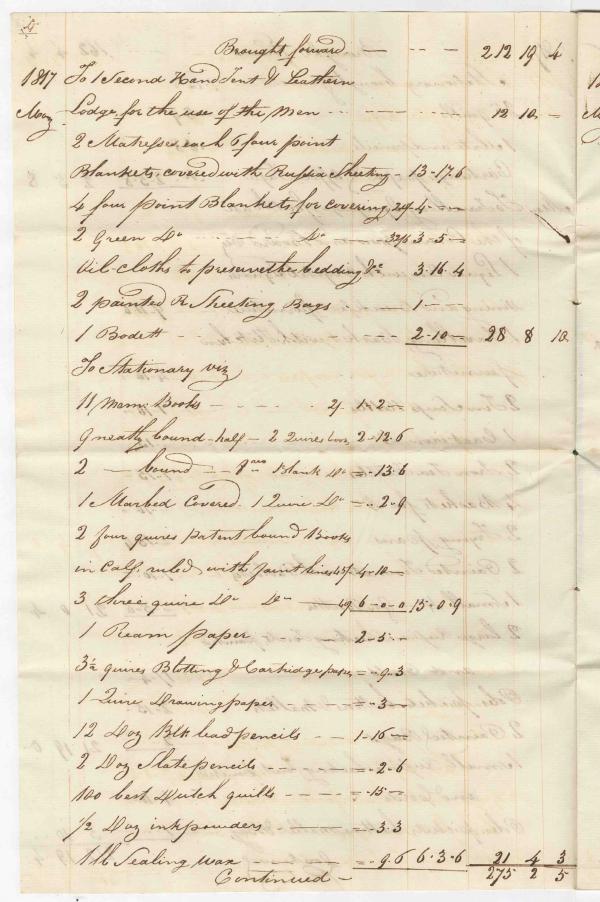 Brought forward — - - - 212 19 4
1817 To 1 Second Hand Tent & Leathern
May Lodge for the use of the Men - - - - - - 12 10 -
2 Matresses each 6 four point
Blankets, covered with Russia Sheeting - 13-17-6
4 four point Blankets for covering 20/ 4 - -
2 Green Do - - - Do - 32/6 3-5-
Oil-cloths to preserve the bedding &c 3-16-4
2 painted R Sheeting Bags - - 1 - -
1 Bodett - - - - - 2-10- 28 8 10
To Stationary viz
11 Mem: Books - - - - 2/ 1-2-
9 neatly bound-half - 2 Quires 2-12-6
2 — bound — 8vo Blank Do = -13-6
1 Marbed Covered. 1 Quire Do = -2-9
2 four quires patent bound Books
in Calf. ruled with faint lines 45/ 4-10-
3 three quire Do Do — 40/ 6-0-0 15-0-9
1 Ream paper - 2-5-
3½ quires Blotting & Cartridge paper = -9-3
1 Quire Drawing paper = -3-
12 Doz Blk lead pencils - - 1-16-
2 Doz Slate pencils - - - - = -2-6
100 best Dutch quills - - - = -15-
1/2 Doz inkpowders - - - = -3-3
1 lb Sealing wax - - - = -9-6 6-3-6 21 4 3
Continued - 275 2 5